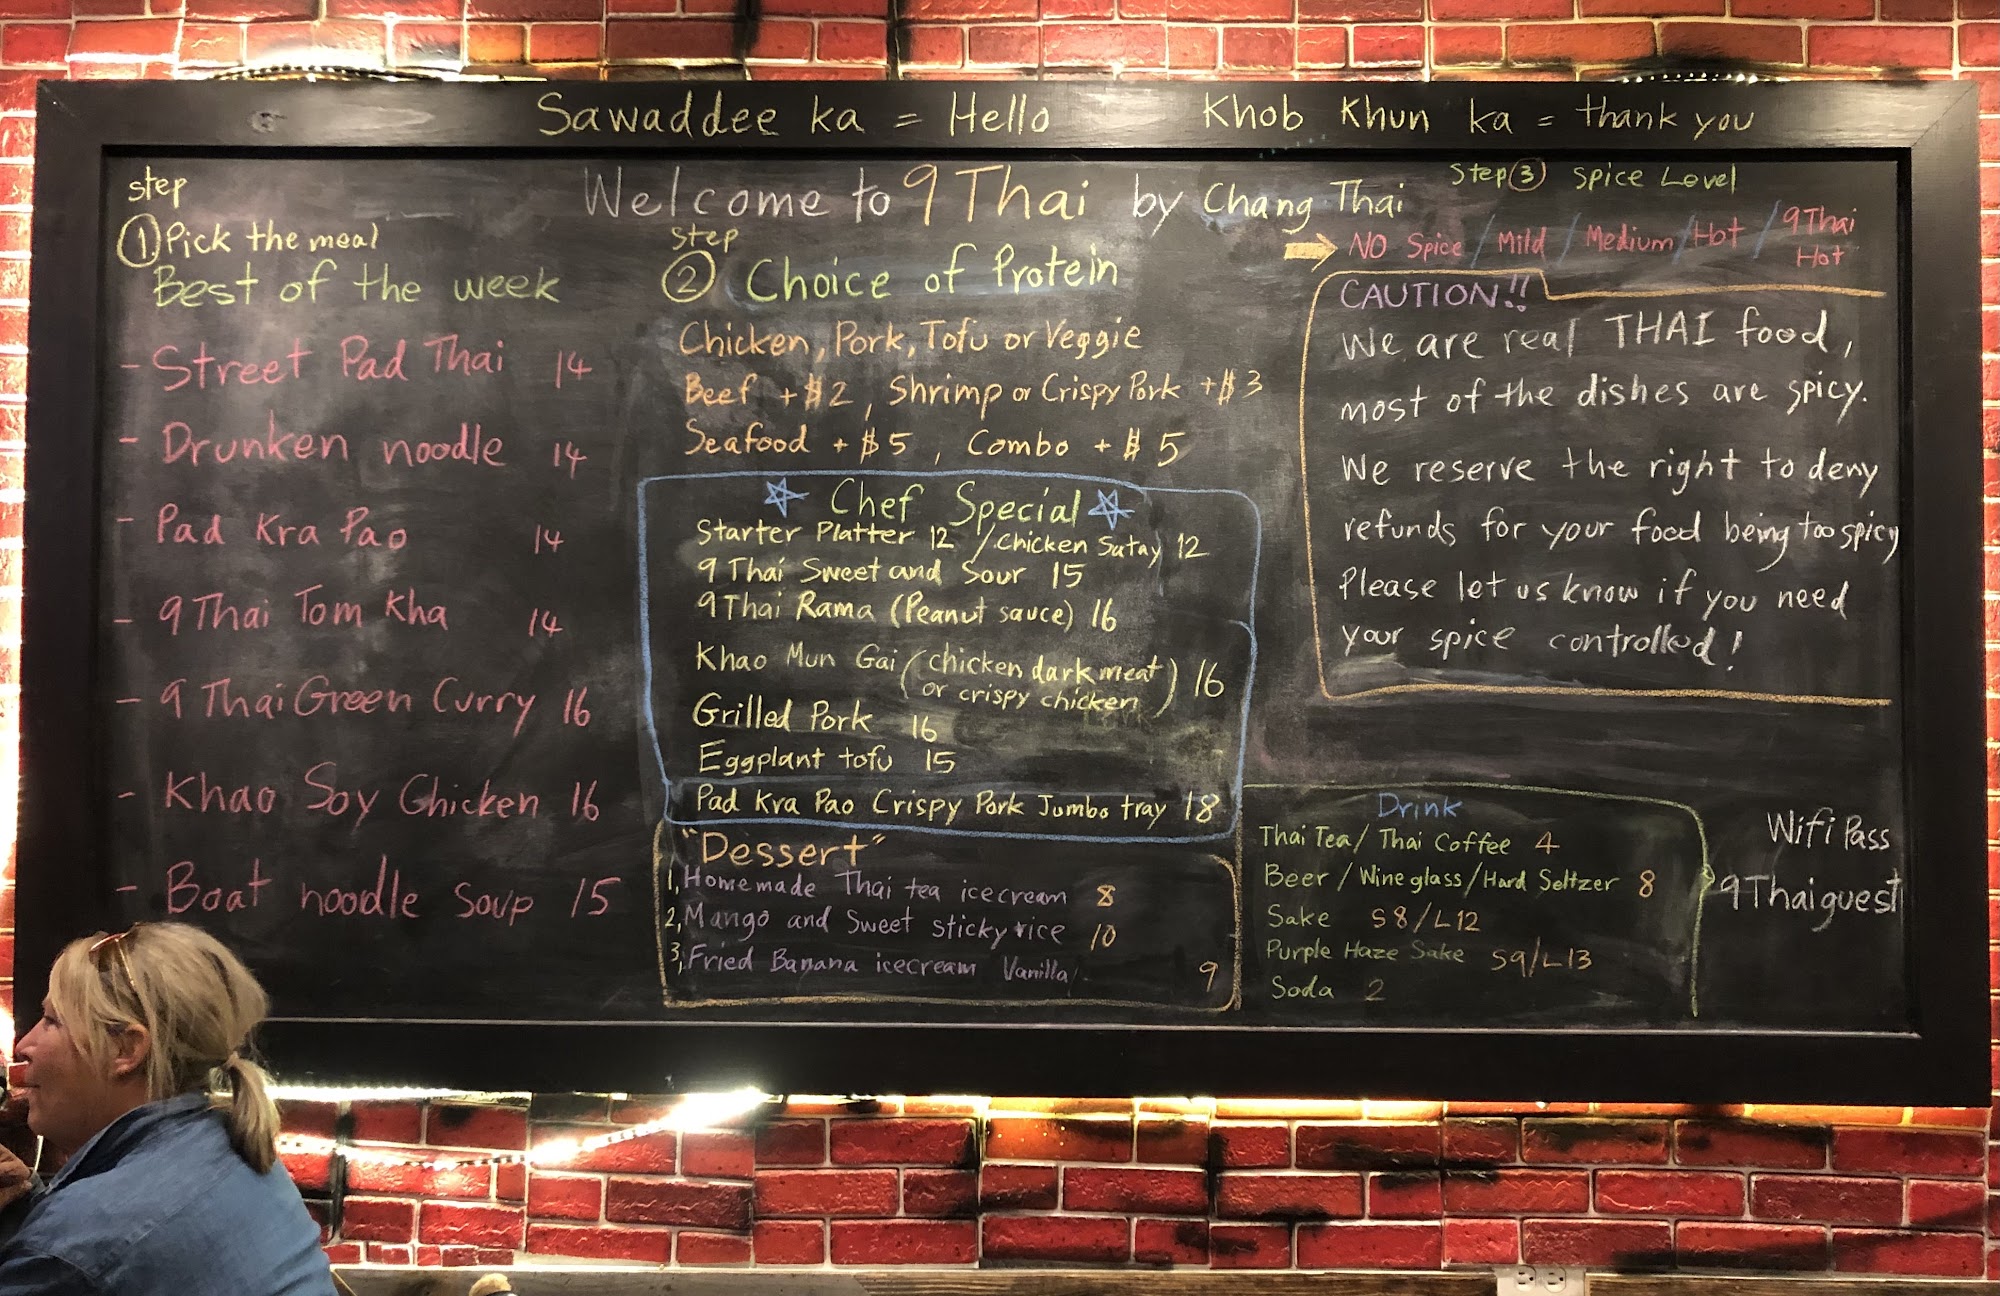 Sawaddee ka = Hello
Khob Khun ka = thank you
Welcome to 9 Thai by Chang Thai
step
1. Pick the meal
Best of the week
- Street Pad Thai 14
- Drunken noodle 14
- Pad Kra Pao 14
- 9 Thai Tom Kha 14
- 9 Thai Green Curry 16
- Khao Soy Chicken 16
- Boat noodle soup 15
step
2 Choice of Protein
Chicken, Pork, Tofu or Veggie
Beef + $2, Shrimp or Crispy Pork + $3
Seafood + $5, Combo + $5
Chef Special
Starter Platter 12 / Chicken Satay 12
9 Thai Sweet and Sour 15
9 Thai Rama (Peanut sauce) 16
Khao Mun Gai (chicken dark meat
or crispy chicken) 16
Grilled Pork 16
Eggplant tofu 15
Pad Kra Pao Crispy Pork Jumbo tray 18
"Dessert"
1, Homemade Thai tea icecream 8
2, Mango and Sweet sticky rice 10
3, Fried Banana icecream Vanilla 9
Step 3 Spice Level
NO Spice / Mild / Medium / Hot / 9 Thai
Hot
CAUTION!!
We are real THAI food,
most of the dishes are spicy.
We reserve the right to deny
refunds for your food being too spicy
Please let us know if you need
your spice controlled!
Drink
Thai Tea / Thai Coffee 4
Beer / Wine glass / Hard Seltzer 8
Sake S8/L12
Purple Haze Sake S9/L13
Soda 2
Wifi Pass
9Thaiguest